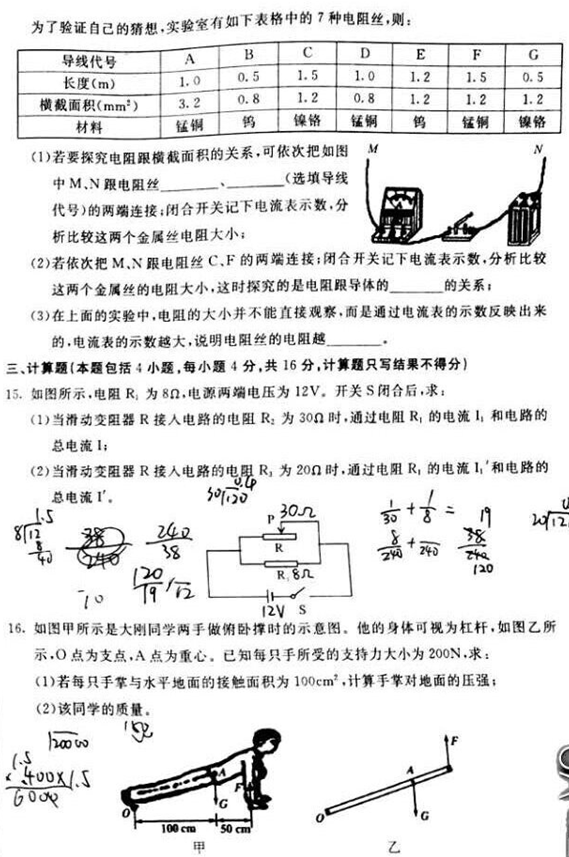 为了验证自己的猜想,实验室有如下表格中的7种电阻丝,则:
导线代号 A B C D E F G
长度(m) 1.0 0.5 1.5 1.0 1.2 1.5 0.5
横截面积(mm²) 3.2 0.8 1.2 0.8 1.2 1.2 1.2
材料 锰铜 钨 镍铬 锰铜 钨 锰铜 镍铬
(1)若要探究电阻跟横截面积的关系,可依次把如图
中M、N跟电阻丝________、________(选填导线
代号)的两端连接;闭合开关记下电流表示数,分
析比较这两个金属丝电阻大小;
M N
(2)若依次把M、N跟电阻丝C、F的两端连接;闭合开关记下电流表示数,分析比较
这两个金属丝的电阻大小,这时探究的是电阻跟导体的________的关系;
(3)在上面的实验中,电阻的大小并不能直接观察,而是通过电流表的示数反映出来
的,电流表的示数越大,说明电阻丝的电阻越________。
三、计算题(本题包括4小题,每小题4分,共16分,计算题只写结果不得分)
15. 如图所示,电阻R₁为8Ω,电源两端电压为12V。开关S闭合后,求:
(1)当滑动变阻器R接入电路的电阻R₂为30Ω时,通过电阻R₁的电流I₁和电路的
总电流I;
(2)当滑动变阻器R接入电路的电阻R₃为20Ω时,通过电阻R₁的电流I₁′和电路的
总电流I′。
0.4
30 120
1.5
8 12
8
40
38
240
240
38
120
19
12
P 30Ω
R
R₁ 8Ω
12V S
1/30 + 1/8 = 19
8/240 + /240 38/240
120
16. 如图甲所示是大刚同学两手做俯卧撑时的示意图。他的身体可视为杠杆,如图乙所
示,O点为支点,A点为重心。已知每只手所受的支持力大小为200N,求:
(1)若每只手掌与水平地面的接触面积为100cm²,计算手掌对地面的压强;
(2)该同学的质量。
150
1.5
400×1.5
6000
O A F G
100 cm 50 cm
甲
O A F G
乙